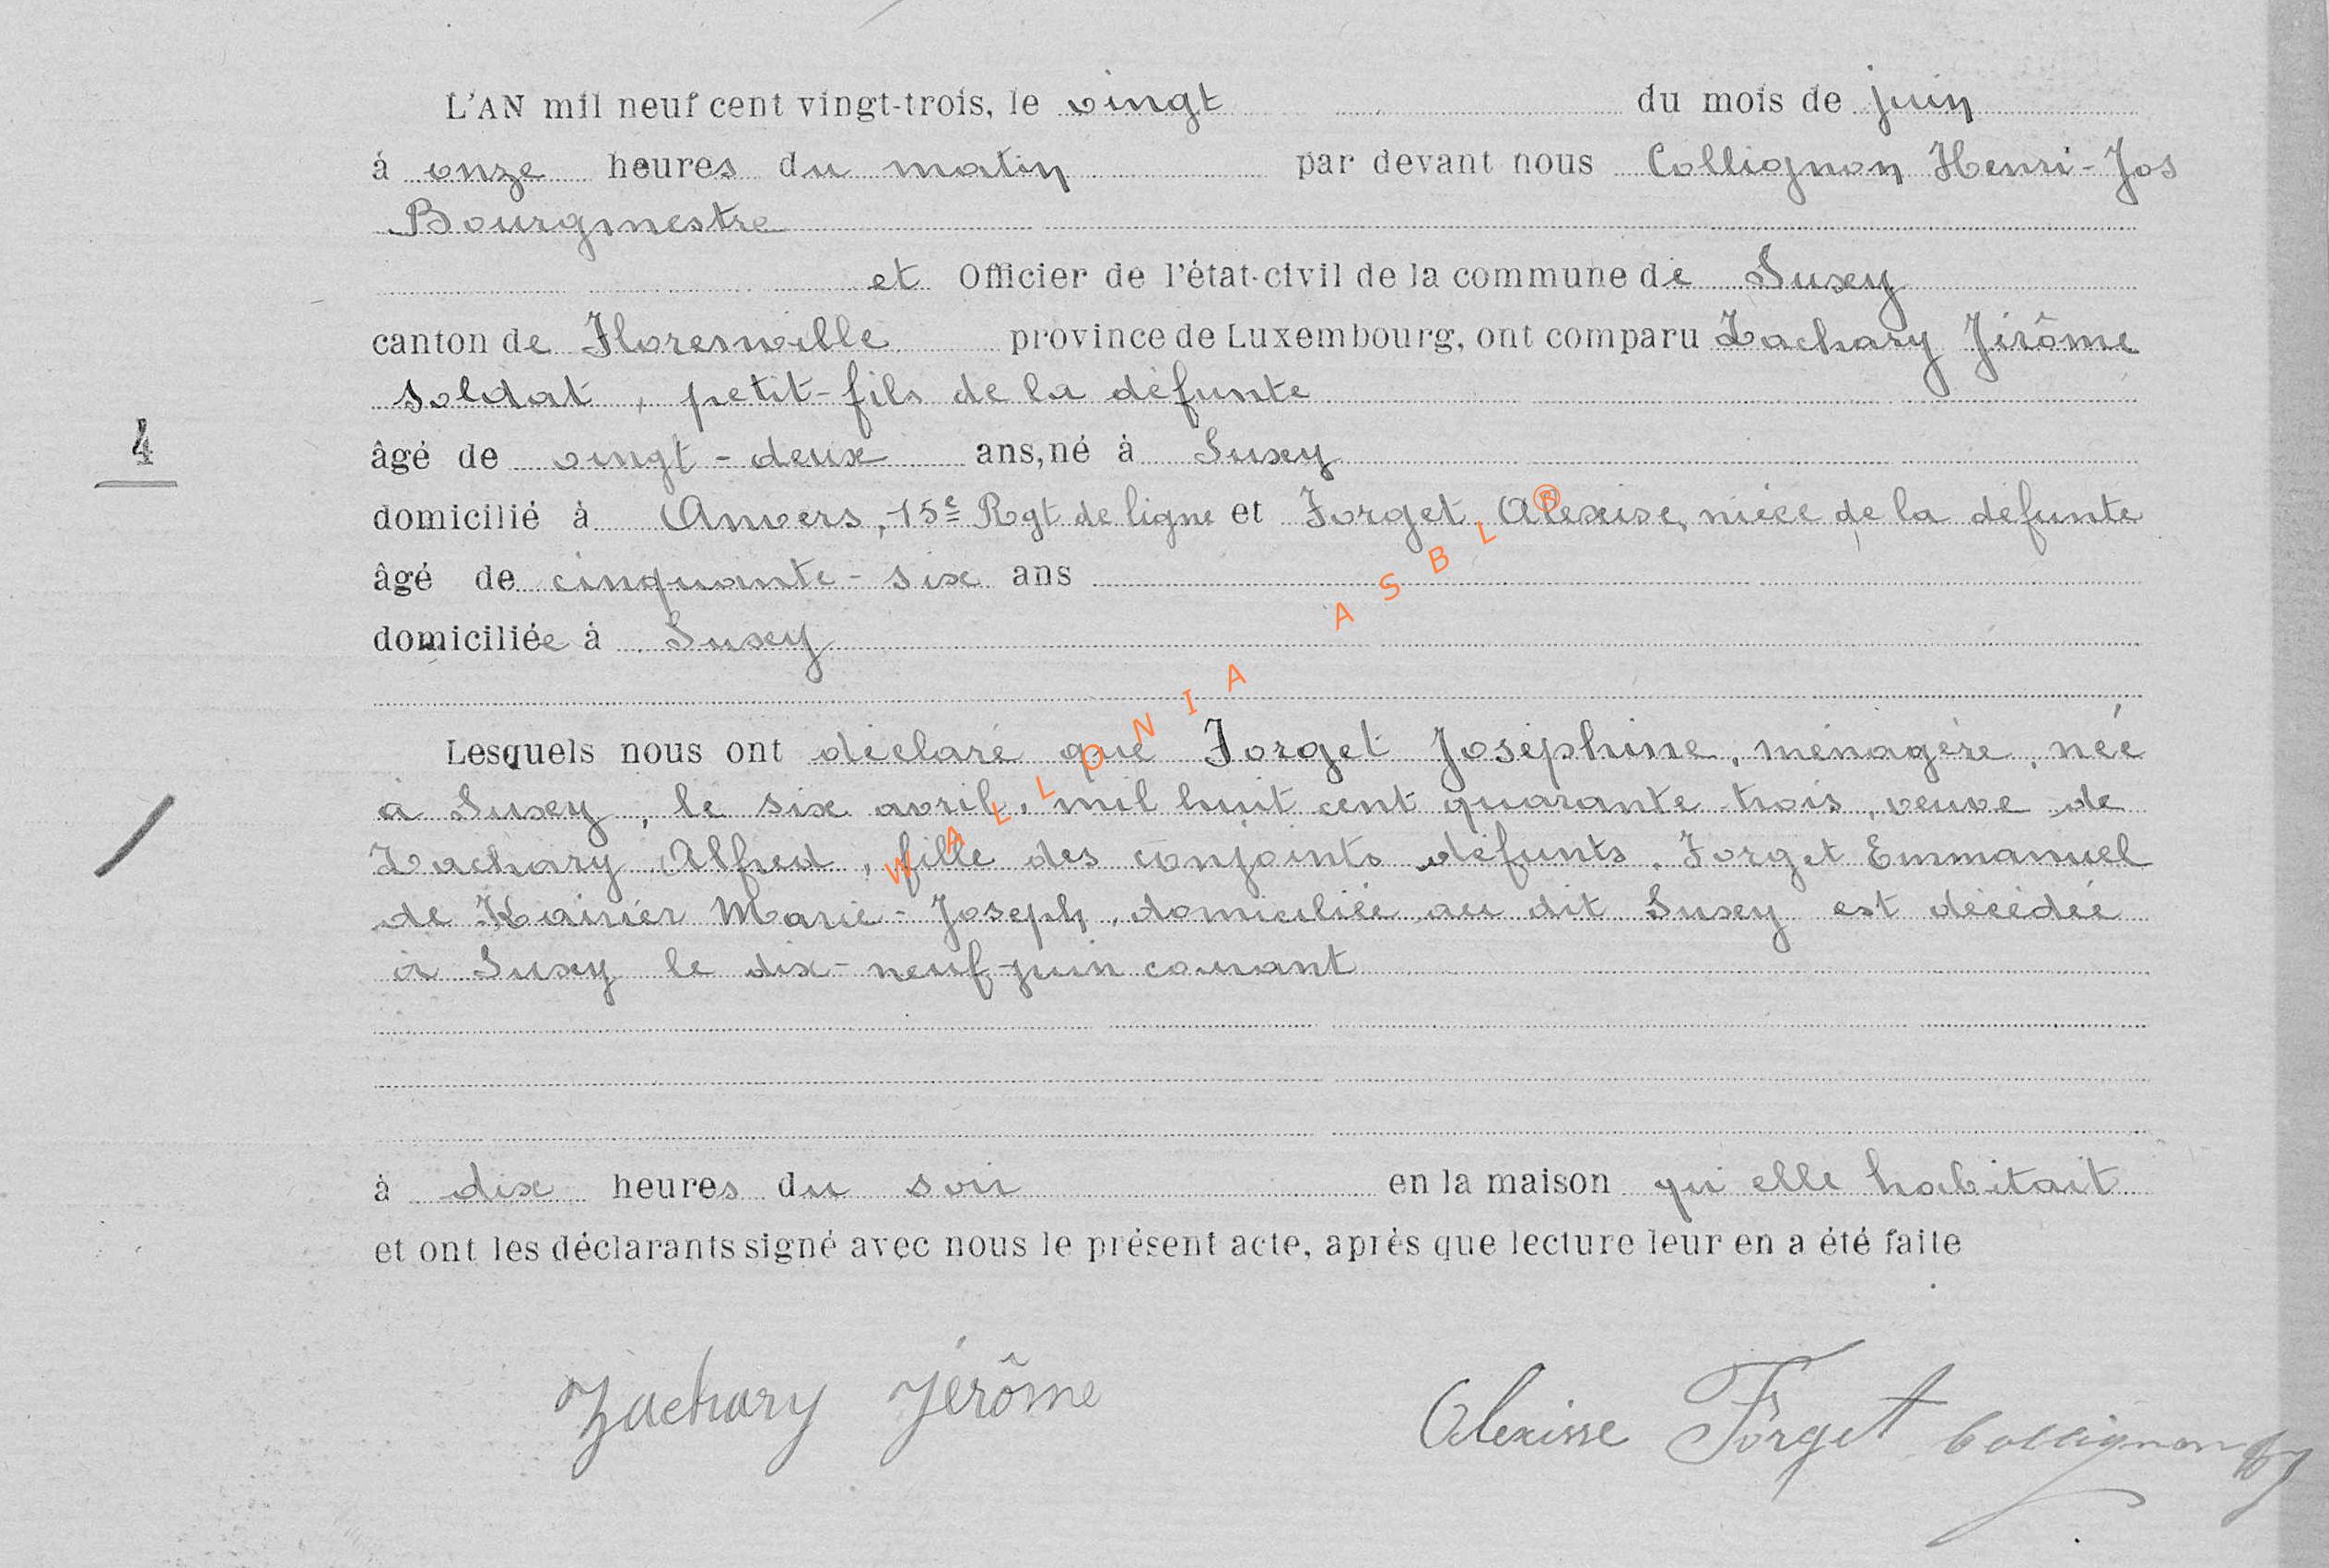 L'AN mil neuf cent vingt-trois, le vingt du mois de juin
à onze heures du matin par devant nous Collignon Henri-Jos
Bourgmestre
et Officier de l'état-civil de la commune de Suxy
canton de Florenville province de Luxembourg, ont comparu Zachary Jérôme
soldat, petit-fils de la défunte
4
âgé de vingt-deux ans, né à Suxy
domicilié à Anvers, 15e Rgt de ligne et Forget Alexise, nièce de la défunte
âgé de cinquante-six ans
domiciliée à Suxy
Lesquels nous ont déclaré que Forget Joséphine, ménagère, née
à Suxy, le six avril, mil huit cent quarante-trois, veuve de
Zachary Alfred, fille des conjoints défunts, Forget Emmanuel
de Marie-Joseph, domiciliée au dit Suxy est décédée
à Suxy le dix-neuf juin courant
à dix heures du soir en la maison qu'elle habitait
et ont les déclarants signé avec nous le présent acte, après que lecture leur en a été faite
Zachary Jérôme Alexisse Forget Collignon
WALLONIA ASBL ®